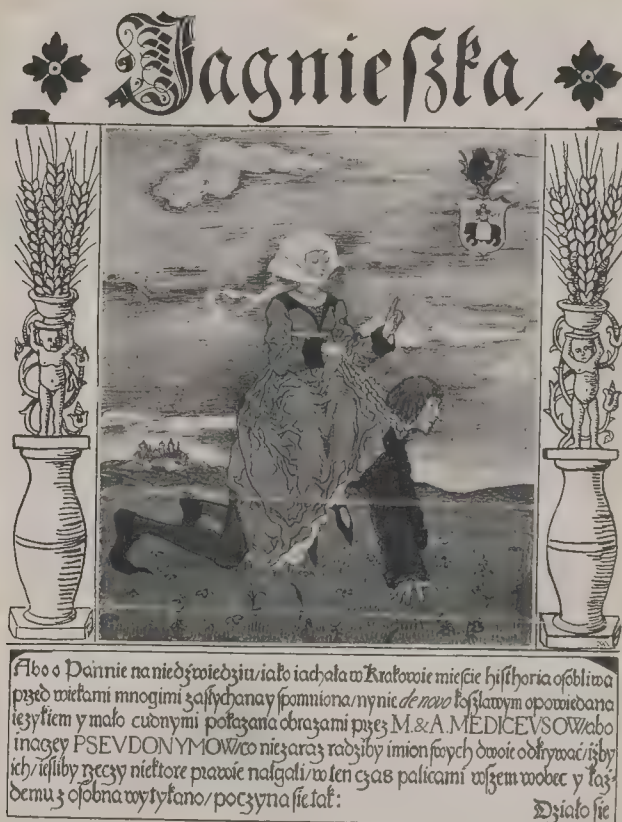 Jagnieſzka/
Abo o Pannie na niedźwiedziu/iako iachała w Krakowie mieście hiſthoria oſobliwa
przed wiekami mnogimi zaſłychana y ſpomniona/ny nic de novo koſzlawym opowiedana
iezykiem y mało cudnymi pokazana obrazami przez M.&A.MEDICEVSOW/abo
inaczey PSEVDONYMOW/co nie zaraz radziby imion ſwych dwoie odkrywać/iżby
ich/ieſliby rzeczy niektore prawie nałgali/w ten czas palicami wſzem wobec y każ-
demu z oſobna wytykano/poczyna ſie tak:
Działo ſie